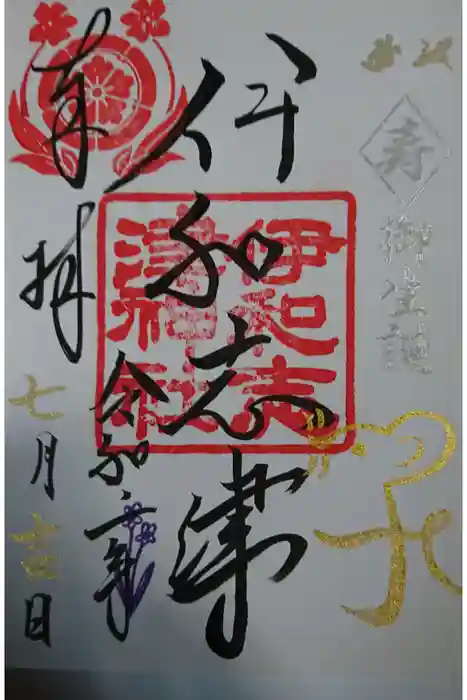 寿
御生誕
伊和志津
伊和志
津神社
令和二年
奉拝
七月吉日